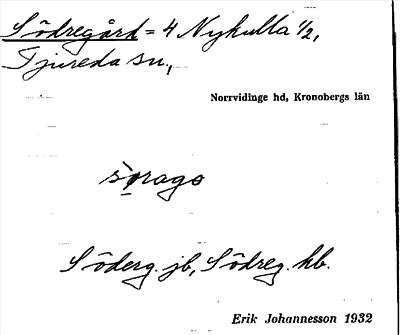 Södregård = 4 Nykulla 1/2,
Tjureda sn.,
Norrvidinge hd, Kronobergs län
sörago
Söderg. jb, Södreg. kb.
Erik Johannesson 1932